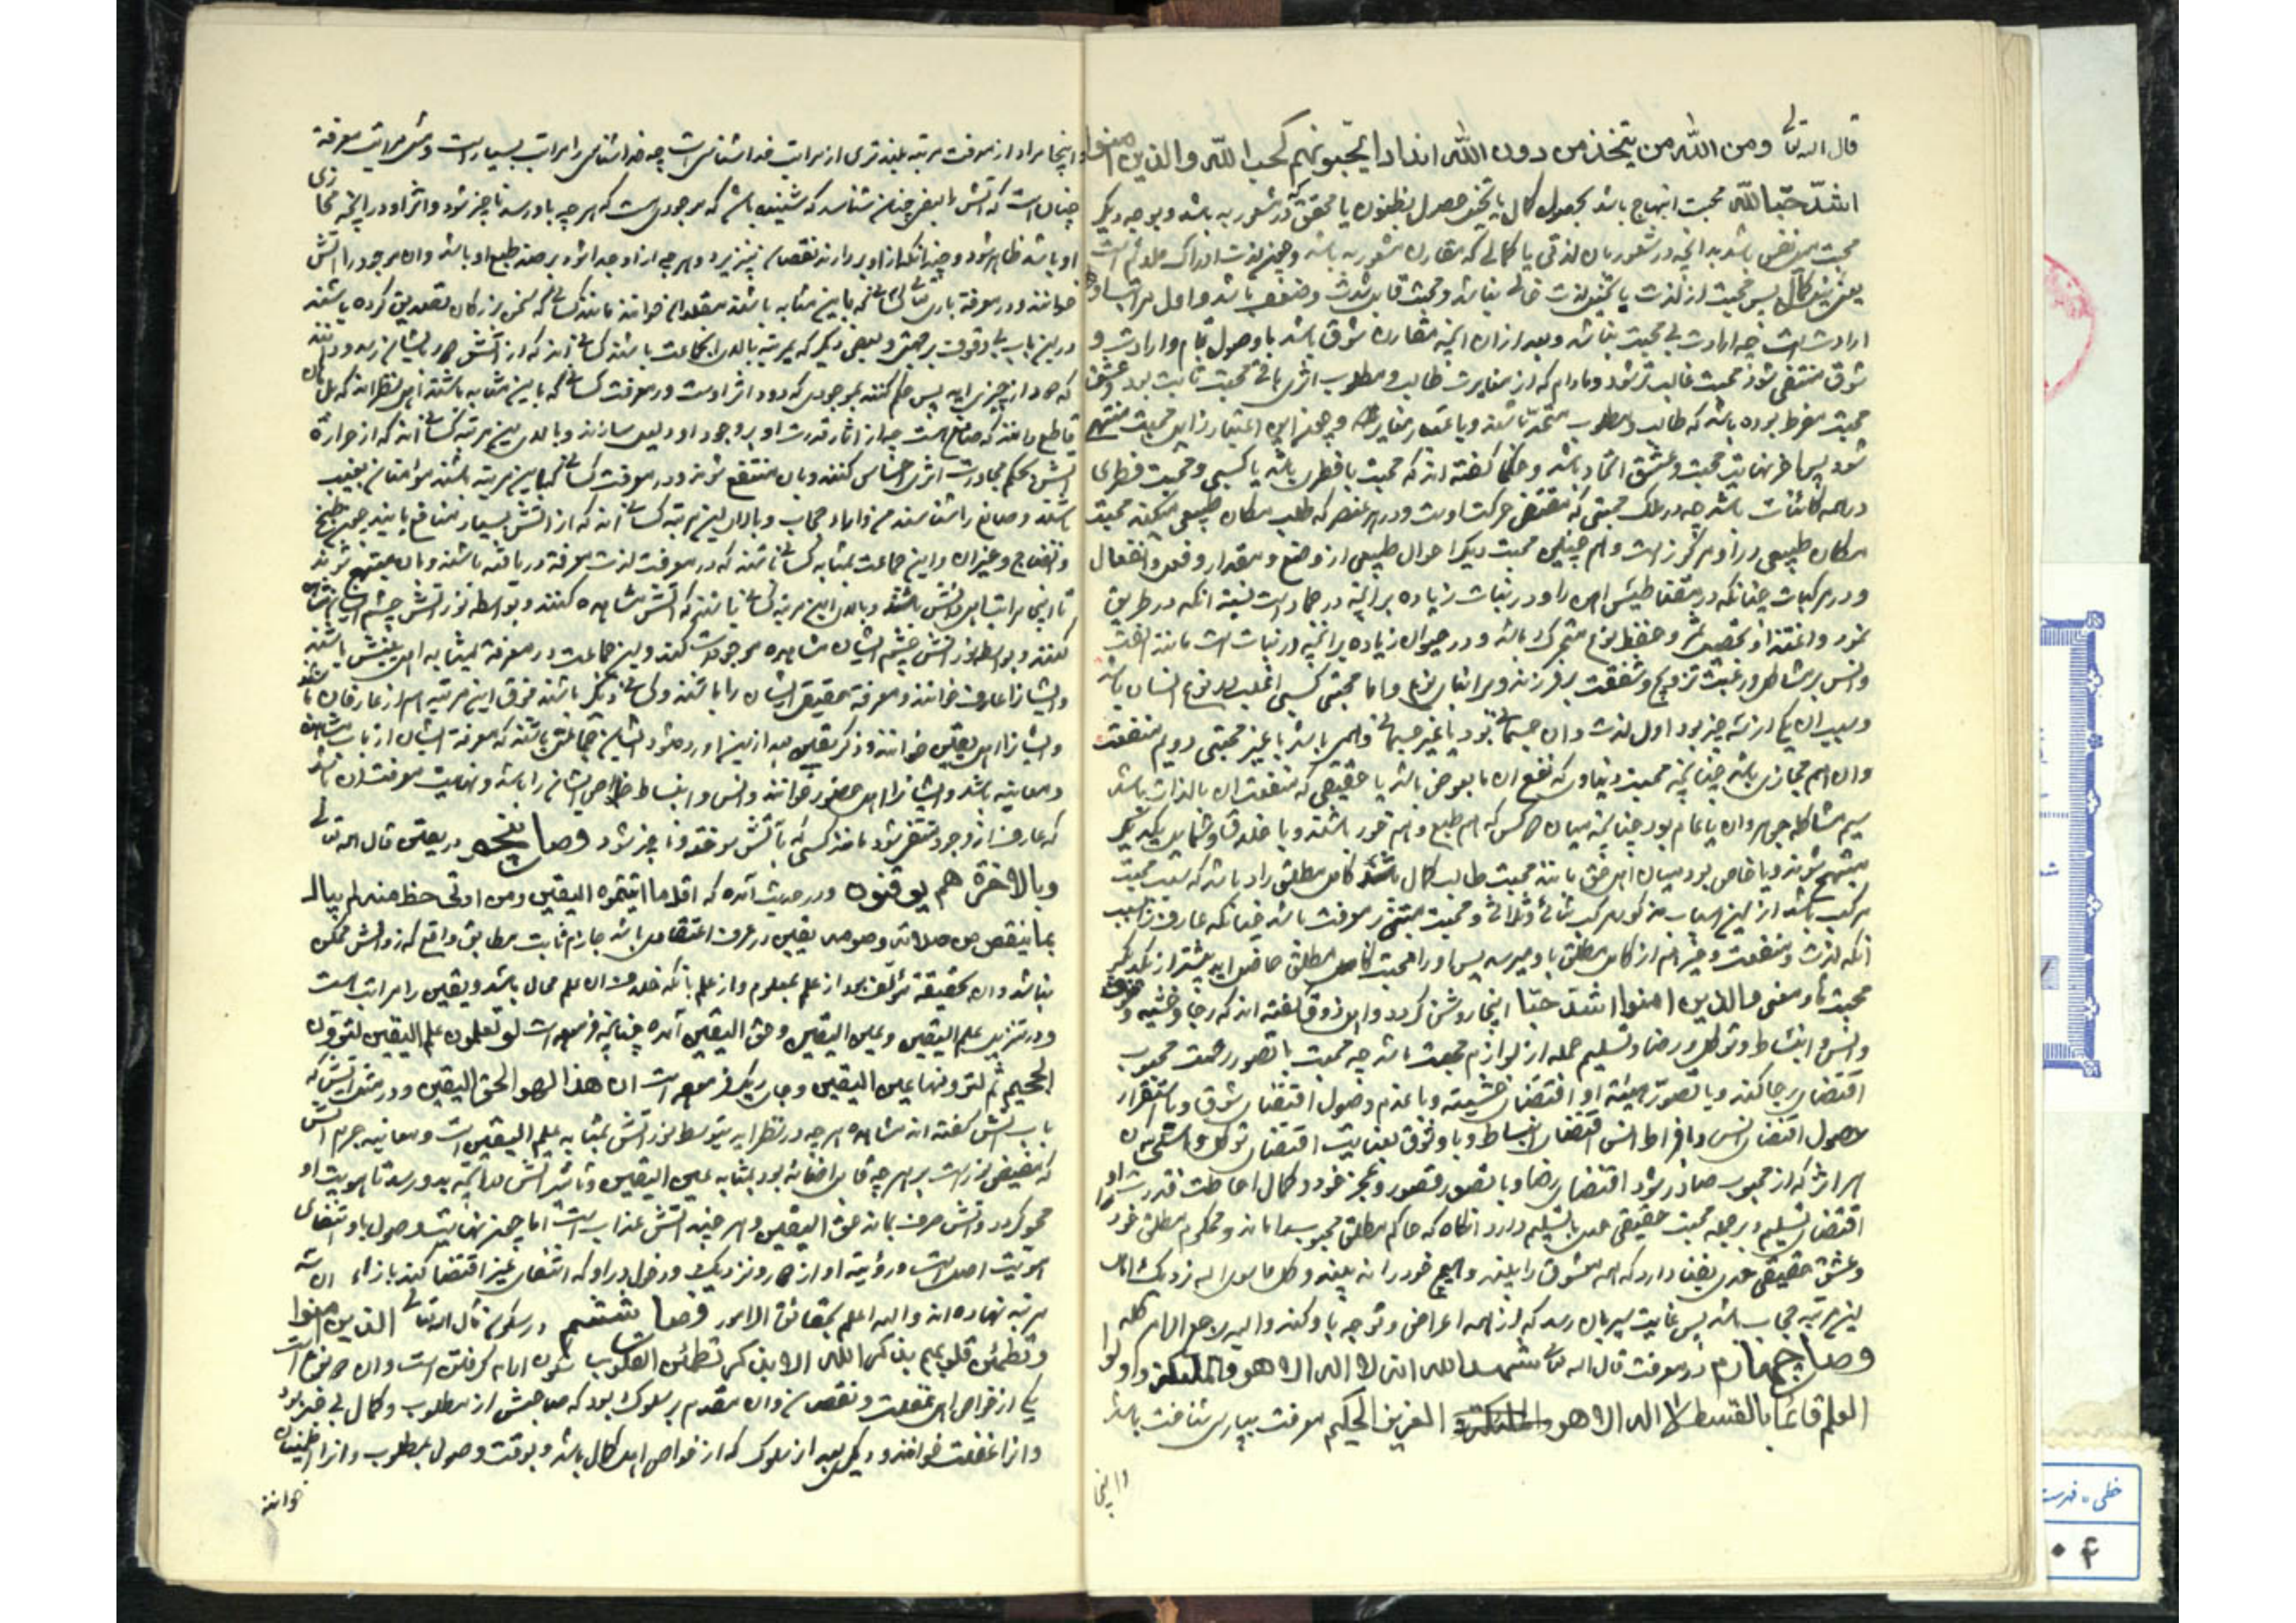 قال الله تعالی ومن الناس من یتخذ من دون الله اندادا یحبونهم کحب الله والذین امنوا
اشدّ حبّا لله محبت ابتهاج باشد بحصول کمال یا تخیل حصول کمال مظنون یا محقق که در شعور به باشد و بوجه دیگر
محبت میل نفس باشد بدانچه در شعور بدان لذتی یا کمالی که مقارن شعور به باشد و چون لذت ادراک ملائم است
یعنی نیل کمال پس محبت از لذت یا تخیل لذت خالی نباشد و محبت قابل شدت و ضعف باشد و اول مراتب او
ارادت است چه ارادت بی محبت نباشد و بعد از ان انچه مقارن شوق باشد با وصول تمام و ارادت و
شوق منتفی شود محبت غالب تر شود و مادام که از مغایرت طالب و مطلوب اثری باقی محبت ثابت بود و عشق
محبت مفرط بوده باشد که طالب و مطلوب متحد باشند و باعتبار مغایر و چون این اعتبار زایل محبت منتهی
شود پس اخر نهایت محبت و عشق اتحاد باشد و حکما گفته اند که محبت یا فطری باشد یا کسبی و محبت فطری
در همه کائنات باشد چه در فلک محبتی که مقتضی حرکت اوست و در هر عنصر که طلب مکان طبیعی میکند محبت
مکان طبیعی در او مرکوز است و هم چنین محبت دیگر احوال طبیعی از وضع و مقدار و فعل و انفعال
و در مرکبات چنانکه در مقناطیس اهن را و در نبات زیاده بر انچه در جماد است بسبب انکه در طریق
نمو و اغتذا و تحصیل بذر و حفظ نوع متحرک باشد و در حیوان زیاده بر انچه در نبات است مانند الفت
وانس بر مشاکل و رغبت تزویج و شفقت بر فرزند و بر ابنای نوع و اما محبت کسبی اغلب در نوع انسان باشد
و سبب ان یکی از سه چیز بود اول لذت و ان جسمانی بود یا غیر جسمانی و وهمی باشد یا غیر حقیقی دویم منفعت
و ان هم مجازی باشد چنانچه محبت دنیاوی که نفع ان بالعرض باشد یا حقیقی که منفعت ان بالذات باشد
سیم مشاکله جوهر و ان یا عام بود چنانچه میان دو کس که هم طبع و هم خود باشند و باخلاق و شمایل یکدیگر
مبتهج شوند و یا خاص بود میان اهل حق مانند محبت طالب کمال کامل مطلق را و باشد که سبب محبت
مرکب باشد از این اسباب مذکور مرکب ثنائی و ثلاثی و محبت مبتنی بر معرفت باشد چنانکه عارف را سبب
انکه لذت و منفعت و خیر هم از کامل مطلق باو میرسد پس او را محبت کامل مطلق حاصل اید بیشتر از یکدیگر
محبت و معنی والذین امنوا اشد حبّا اینجا روشن گردد و اهل ذوق گفته اند که رجا و خشیه و شوق
و انس و انبساط و توکل و رضا و تسلیم جمله از لوازم محبت باشد چه محبت با تصور رحمت محبوب
اقتضای رجا کند و با تصور هیبت او اقتضای خشیت و با عدم وصول اقتضای شوق و باستقرار
وصول اقتضای انس و بافراط انس اقتضای انبساط و با وثوق بعنایت اقتضای توکل و باستحسان
هر اثر که از محبوب صادر شود اقتضای رضا و با تصور قصور و عجز خود و کمال احاطت قدرت او
اقتضای تسلیم و بر جمله محبت حقیقی حدی با تسلیم دارد انگاه که حاکم مطلق محبوب را داند و محکوم مطلق خود را
و عشق حقیقی حدی بفنا دارد که همه معشوق را بیند و هیچ خود را نه بیند و کل ما سوی الله نزدیک اهل
این مرتبه حجاب باشد پس غایت سیر بان رسد که از همه اعراض و توجه باو کند و الیه یرجع الامر کله
فصل چهارم در معرفت قال الله تعالی شهد الله انه لا اله الا هو والملئکة واولوا
العلم قائما بالقسط لا اله الا هو العزیز الحکیم معرفت بپارسی شناخت باشد
و اینجا
و اینجا مراد از معرفت مرتبه بلندتری از مراتب خداشناسی است چه خداشناسی را مراتب بسیار است و مثل مراتب معرفة
چنان است که آتش را بعضی چنان شناسند که شنیده باشد که موجودی هست که هر چه باو رسد ناچیز شود و اثر او در انچه محاذی
او باشد ظاهر شود و چندانکه از او بردارند نقصان نپذیرد و هر چه از او جدا شود بر ضد طبع او باشد و ان موجود را آتش
خوانند و در معرفة باری تعالی کسانی که باین مثابه باشند مقلدان خوانند مانند کسانی که سخن بزرگان تصدیق کرده باشند
در این باب بی وقوف بر حجتی و بعضی دیگر که بمرتبه بالای این جماعت باشند کسانی اند که از آتش دود بایشان رسد و دانند
که دود از چیزی اید پس حکم کنند بموجودی که دود اثر اوست و در معرفت کسانی که باین مثابه باشند اهل نظر اند که ببرهان
قاطع دانند که صانعی هست چه از اثار قدرت او بر وجود او دلیل سازند و بالای این مرتبه کسانی اند که از حرارت
آتش بحکم مجاورت اثری احساس کنند و بان منتفع شوند و در معرفت کسانی که باین مرتبه باشند مؤمنان بغیب
باشند و صانع را شناسند من وراء حجاب و بالای این مرتبه کسانی اند که از آتش بسیار منافع یابند چون طبخ
و انضاج و غیر ان و این جماعت بمثابه کسانی باشند که در معرفت لذت معرفة دریافته باشند و بان مبتهج شوند
تا اینجا مراتب اهل دانش باشد و بالای این مرتبه کسانی باشند که آتش مشاهده کنند و بواسطه نور آتش چشم ایشان مشاهده
کنند و بواسطه نور آتش چشم ایشان مشاهده موجودات کنند و این جماعت در معرفة بمثابه اهل بینش باشند
و ایشانرا عارف خوانند و معرفة حقیقی ایشان را باشد و کسانی دیگر باشند فوق این مرتبه هم از عارفان باشند
و ایشانرا اهل یقین خوانند و ذکر یقین بعد از این اورده شود و از ایشان جماعتی باشند که معرفة ایشان از باب مشاهده
و معاینه باشد و ایشانرا اهل حضور خوانند و انس و انبساط خاص ایشانرا باشد و نهایت معرفت ان باشد
که عارف از وجود منتفی شود مانند کسی که بآتش سوخته و ناچیز شود فصل پنجم در یقین قال الله تعالی
وبالاخرة هم یوقنون و در حدیث آمده که اقل ما اتیتموه الیقین ومن اوتی حظه منه لم یبال
بما نقص من صلاته وصومه یقین در عرف اعتقادی باشد جازم ثابت مطابق واقع که زوالش ممکن
نباشد و ان بحقیقة مؤلف بود از علم بمعلوم و از علم بانکه خلاف ان علم محال باشد و یقین را مراتب است
و در تنزیل علم الیقین و عین الیقین و حق الیقین آمده چنانچه فرموده است لو تعلمون علم الیقین لترون
الجحیم ثم لترونها عین الیقین و جای دیگر فرموده است ان هذا لهو الحق الیقین و در مثل آتش که
باب آتش گفته اند مشاهده هر چه در نظر اید بتوسط نور آتش بمثابه علم الیقین است و معاینه جرم آتش
که مفیض نور است بر هر چه قابل اضائه بود بمثابه عین الیقین و تاثیر آتش در انچه بدو رسد تا هویت او
محو گردد و آتش صرف بماند حق الیقین و هر چند آتش عذاب است اما چون نهایت وصول باو انتفای
هویت اصل است و رؤیت او از دور و نزدیک و دخول در او که انتفای غیر اقتضا کند بازاء ان سه
مرتبه نهاده اند والله اعلم بحقائق الامور فصل ششم در سکون قال الله تعالی الذین امنوا
وتطمئن قلوبهم بذکر الله الا بذکر الله تطمئن القلوب سکون ارام گرفتن است و ان دو نوع است
یکی از خواص اهل غفلت و نقصان و ان مقدم بر سلوک بود که صاحبش از مطلوب و کمال بی خبر بود
و انرا غفلت خوانند و دیگر بعد از سلوک که از خواص اهل کمال باشد و بوقت وصول بمطلوب و انرا اطمینان
خوانند
خطی - فهرست
۰۴